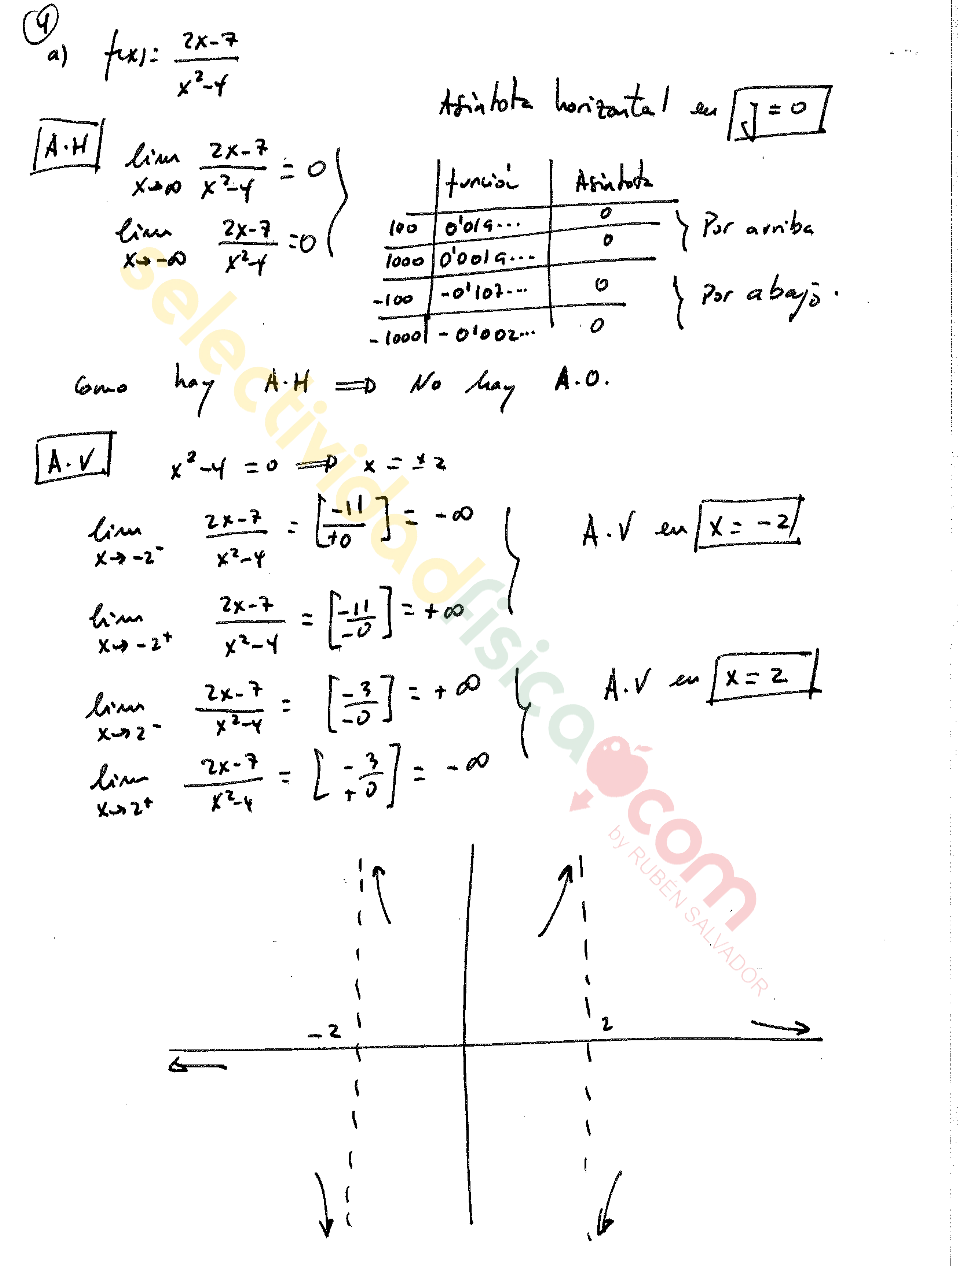 4
a) f(x) = \frac{2x-7}{x^2-4}
Asíntota horizontal en y = 0
A.H
lim x→∞ \frac{2x-7}{x^2-4} = 0
lim x→-∞ \frac{2x-7}{x^2-4} = 0
función | Asíntota
100 | 0'019... | 0
1000 | 0'0019... | 0
} Por arriba
-100 | -0'107... | 0
-1000 | -0'002... | 0
} Por abajo.
Como hay A.H ⟹ No hay A.O.
A.V x^2-4 = 0 ⟹ x = ±2
lim x→-2^- \frac{2x-7}{x^2-4} = [\frac{-11}{+0}] = -∞
lim x→-2^+ \frac{2x-7}{x^2-4} = [\frac{-11}{-0}] = +∞
A.V en x = -2
lim x→2^- \frac{2x-7}{x^2-4} = [\frac{-3}{-0}] = +∞
lim x→2^+ \frac{2x-7}{x^2-4} = [\frac{-3}{+0}] = -∞
A.V en x = 2
-2
2
selectividadfisica.com
by RUBÉN SALVADÓR